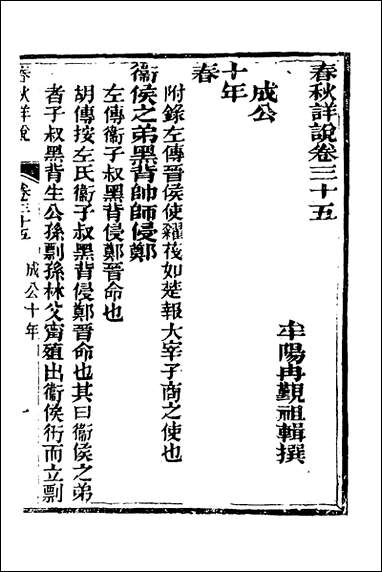 春秋詳說卷三十五
牟陽冉覲祖輯撰
成公
十年
春
附錄左傳晉侯使糴茷如楚報大宰子商之使也
衞侯之弟黑背帥師侵鄭
左傳衞子叔黑背侵鄭晉命也
胡傳按左氏衞子叔黑背侵鄭晉命也其曰衞侯之弟
者子叔黑背生公孫剽孫林父甯殖出衞侯衎而立剽
春秋詳說
卷三十五
成公十年
一